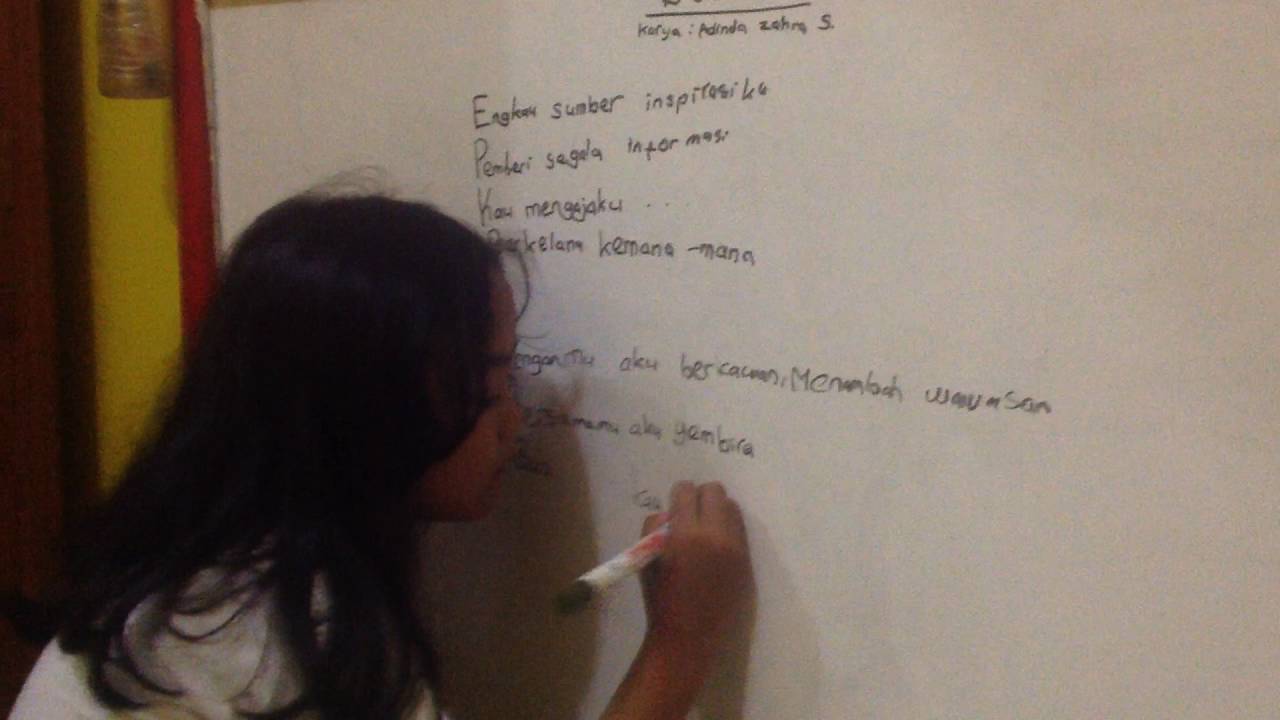 Karya : Adinda Zahra S.
Engkau sumber inspirasiku
Pemberi segala informasi
Kau mengajaku ...
Berkelana kemana-mana
aku bericauan, Menambah wawasan
aku gembira
Kau